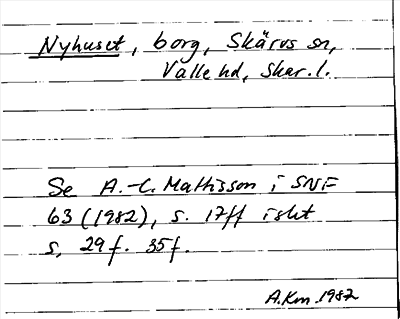 Nyhuset, borg, Skärvs sn,
Valle hd, Skar. l.
Se A.-C. Mattisson i SNF
63 (1982), s. 17ff
s. 29f. 35f.
A.Km. 1987